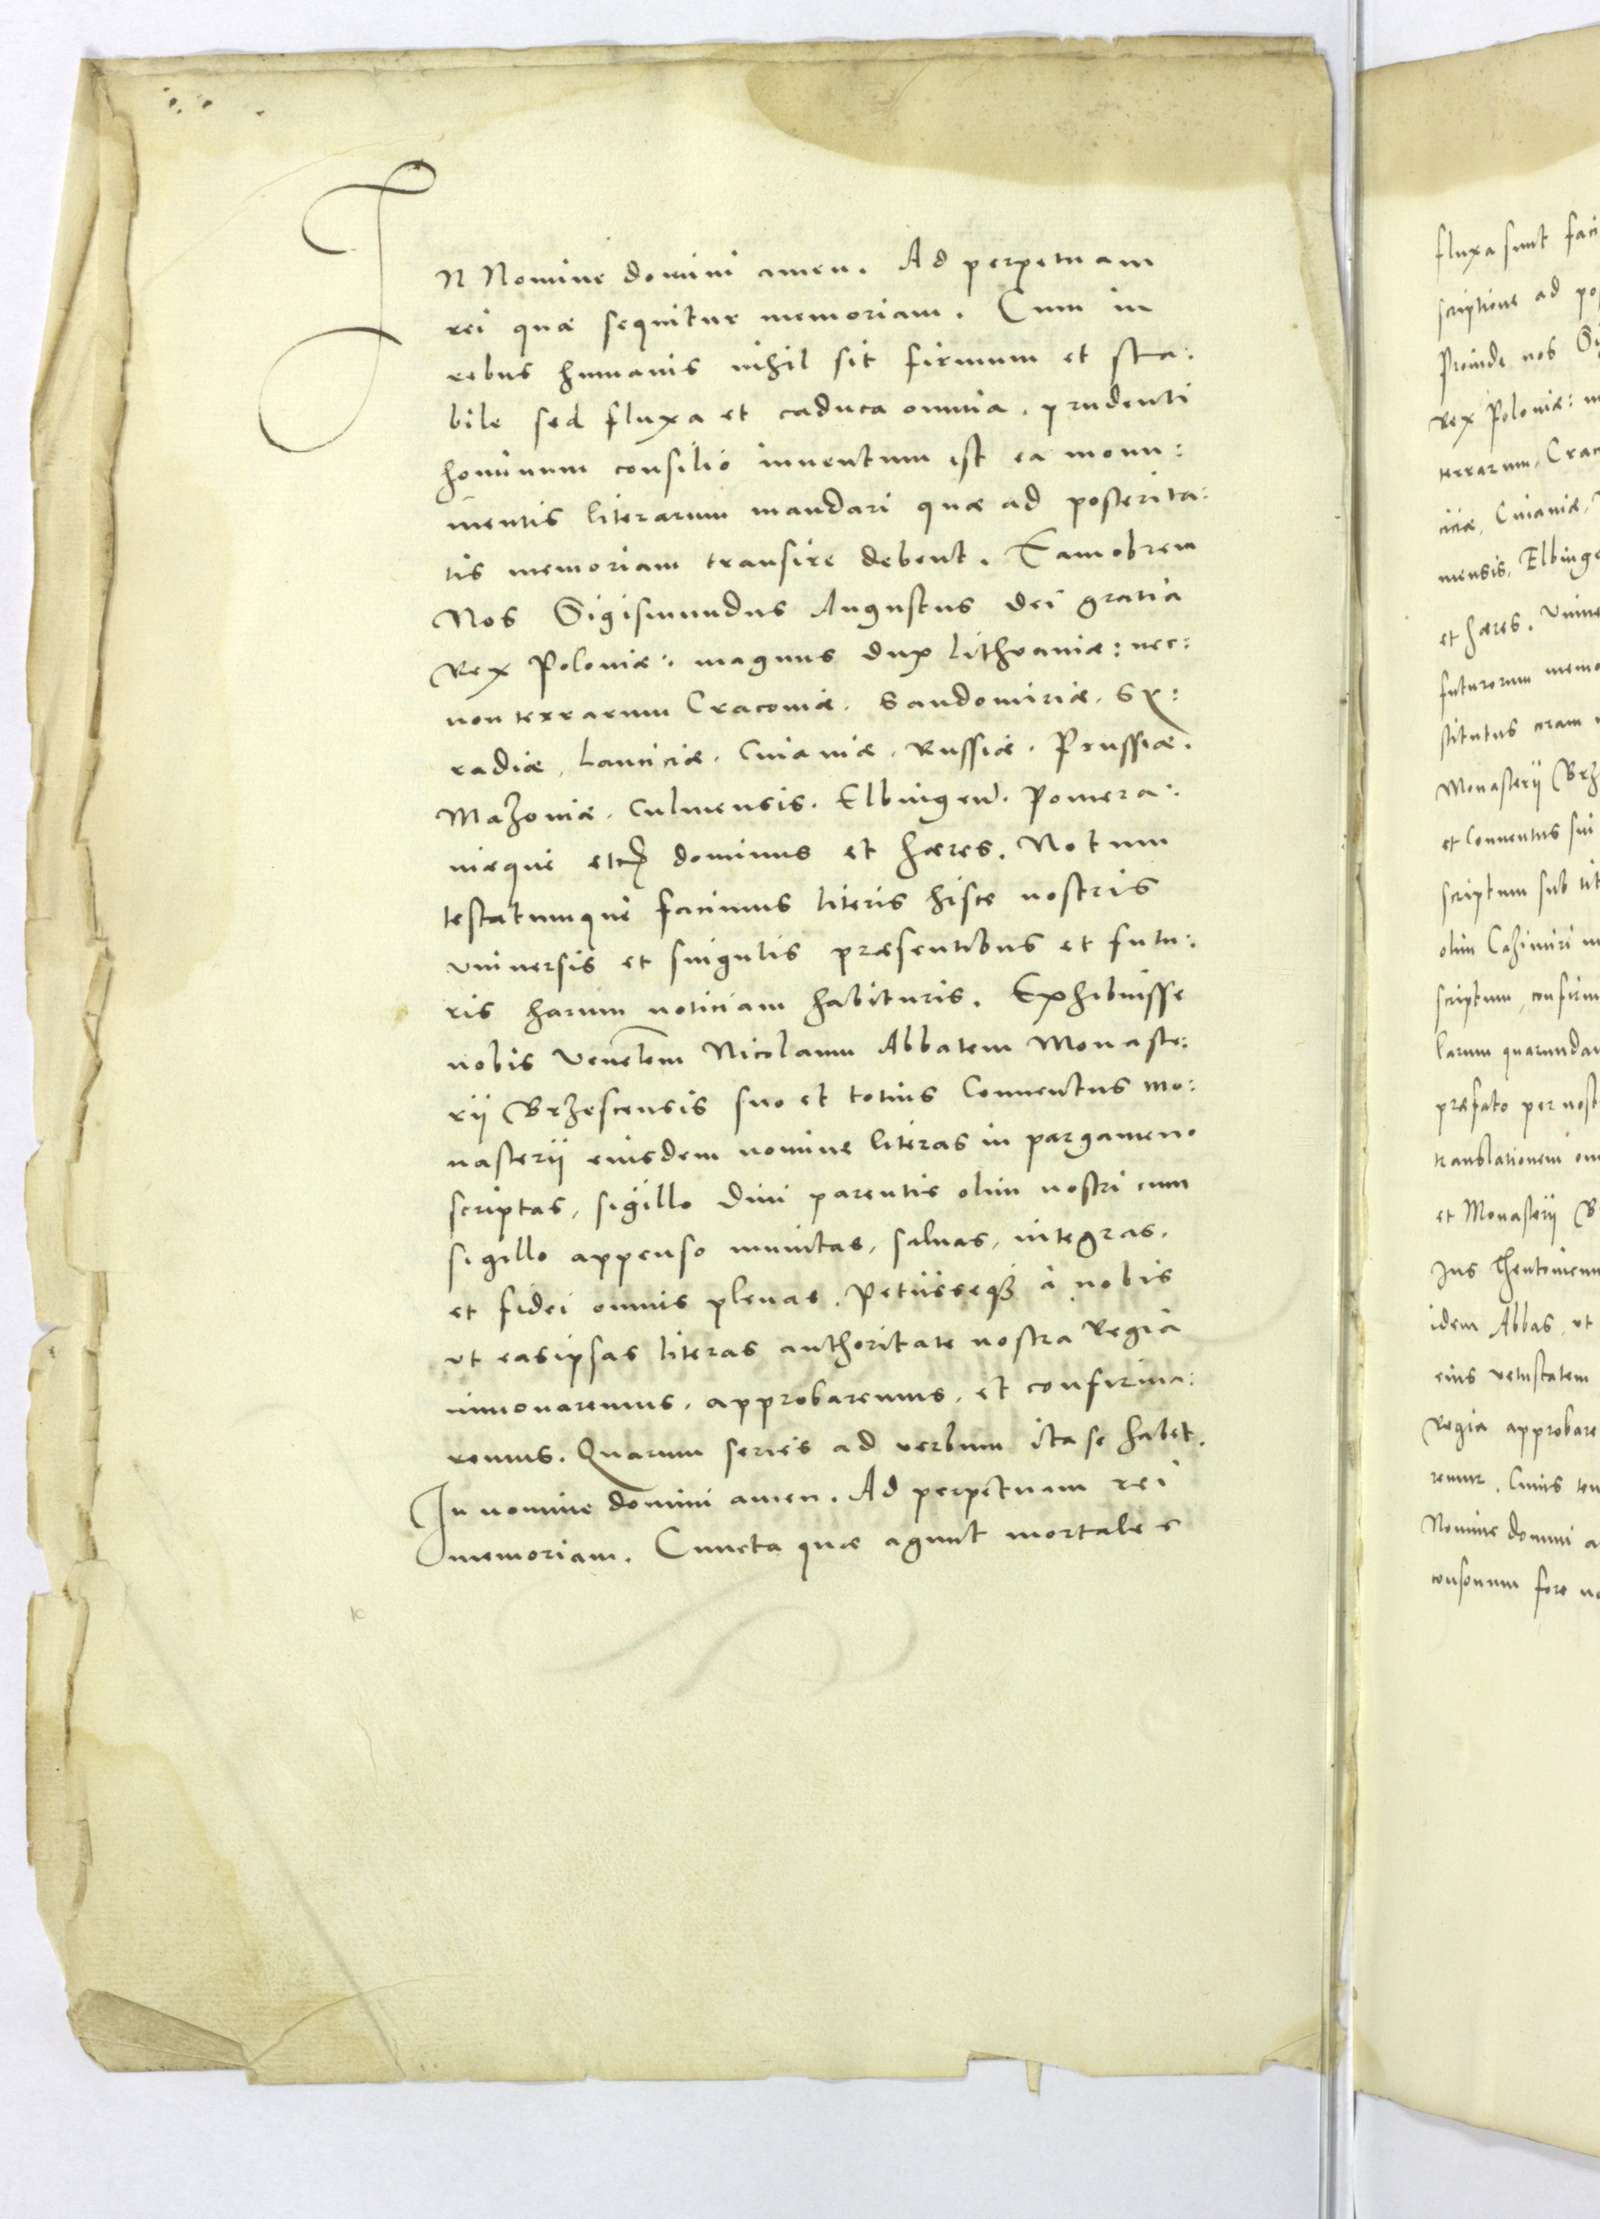 IN Nomine domini amen. Ad perpetuam
rei quæ sequitur memoriam. Cum in
rebus humanis nihil sit firmum et sta:
bile sed fluxa et caduca omnia. prudenti
hominum consilio inuentum est ea monu:
mentis literarum mandari quæ ad posterita:
tis memoriam transire debent. Eamobrem
Nos Sigismundus Augustus dei gratia
Rex Poloniæ: magnus dux Lithvaniæ: nec:
non terrarum Cracoviæ. Sandomiriæ. Sy:
radiæ, Lanciciæ. Cuiaviæ. Russiæ. Prussiæ.
Mazoviæ. Culmensis. Elbingen. Pomera:
niæque etc dominus et hæres. Notum
testatumque facimus literis hisce nostris
vniuersis et singulis præsentibus et futu:
ris harum noticiam habituris. Exhibuisse
nobis Venelem Nicolaum Abbatem Monaste:
rii Brzescensis suo et totius Conuentus mo:
nasterii eiusdem nomine literas in pargameno
scriptas, sigillo diui parentis olim nostri cum
sigillo appenso munitas, saluas, integras.
et fidei omnis plenas. Petiisseq3 à nobis
vt easipsas literas authoritate nostra Regia
innouaremus, approbaremus, et confirma:
remus. Quarum series ad verbum ita se habet.
In nomine domini amen. Ad perpetuam rei
memoriam. Cuncta quæ agunt mortales
fluxa sunt
scriptione ad
Proinde nos
Rex Poloniæ:
terrarum, Crac
ciciæ, Cuiaviæ,
mensis, Elbinge
et hæres. Vniue
futurorum memo
stitutus coram
Monasterii Brz
et Conuentus sui
scriptum sub tit
olim Cazimiri
scriptum, confirm
larum quarundam
præfato per nost
translationem om
et Monasterii B
Ius Theutonicum
idem Abbas, vt
eius vetustatem
Regia approbare
remur. Cuius ten
Nomine domini a
consonum fore